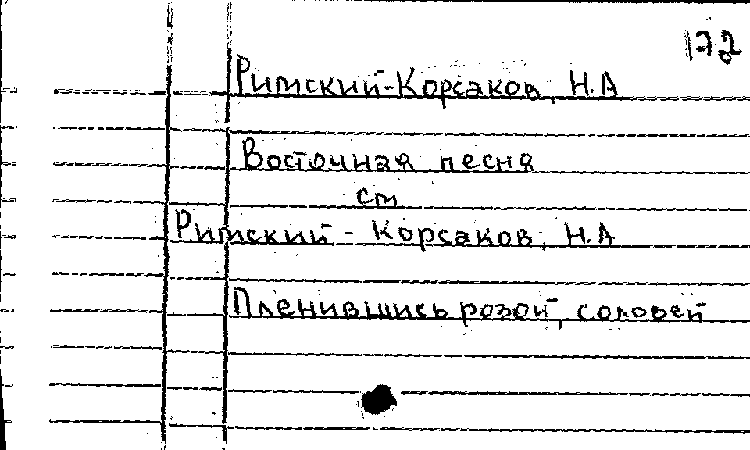 172
Римский-Корсаков, Н.А
Восточная песня
см
Римский - Корсаков, Н.А
Пленившись розой, соловей